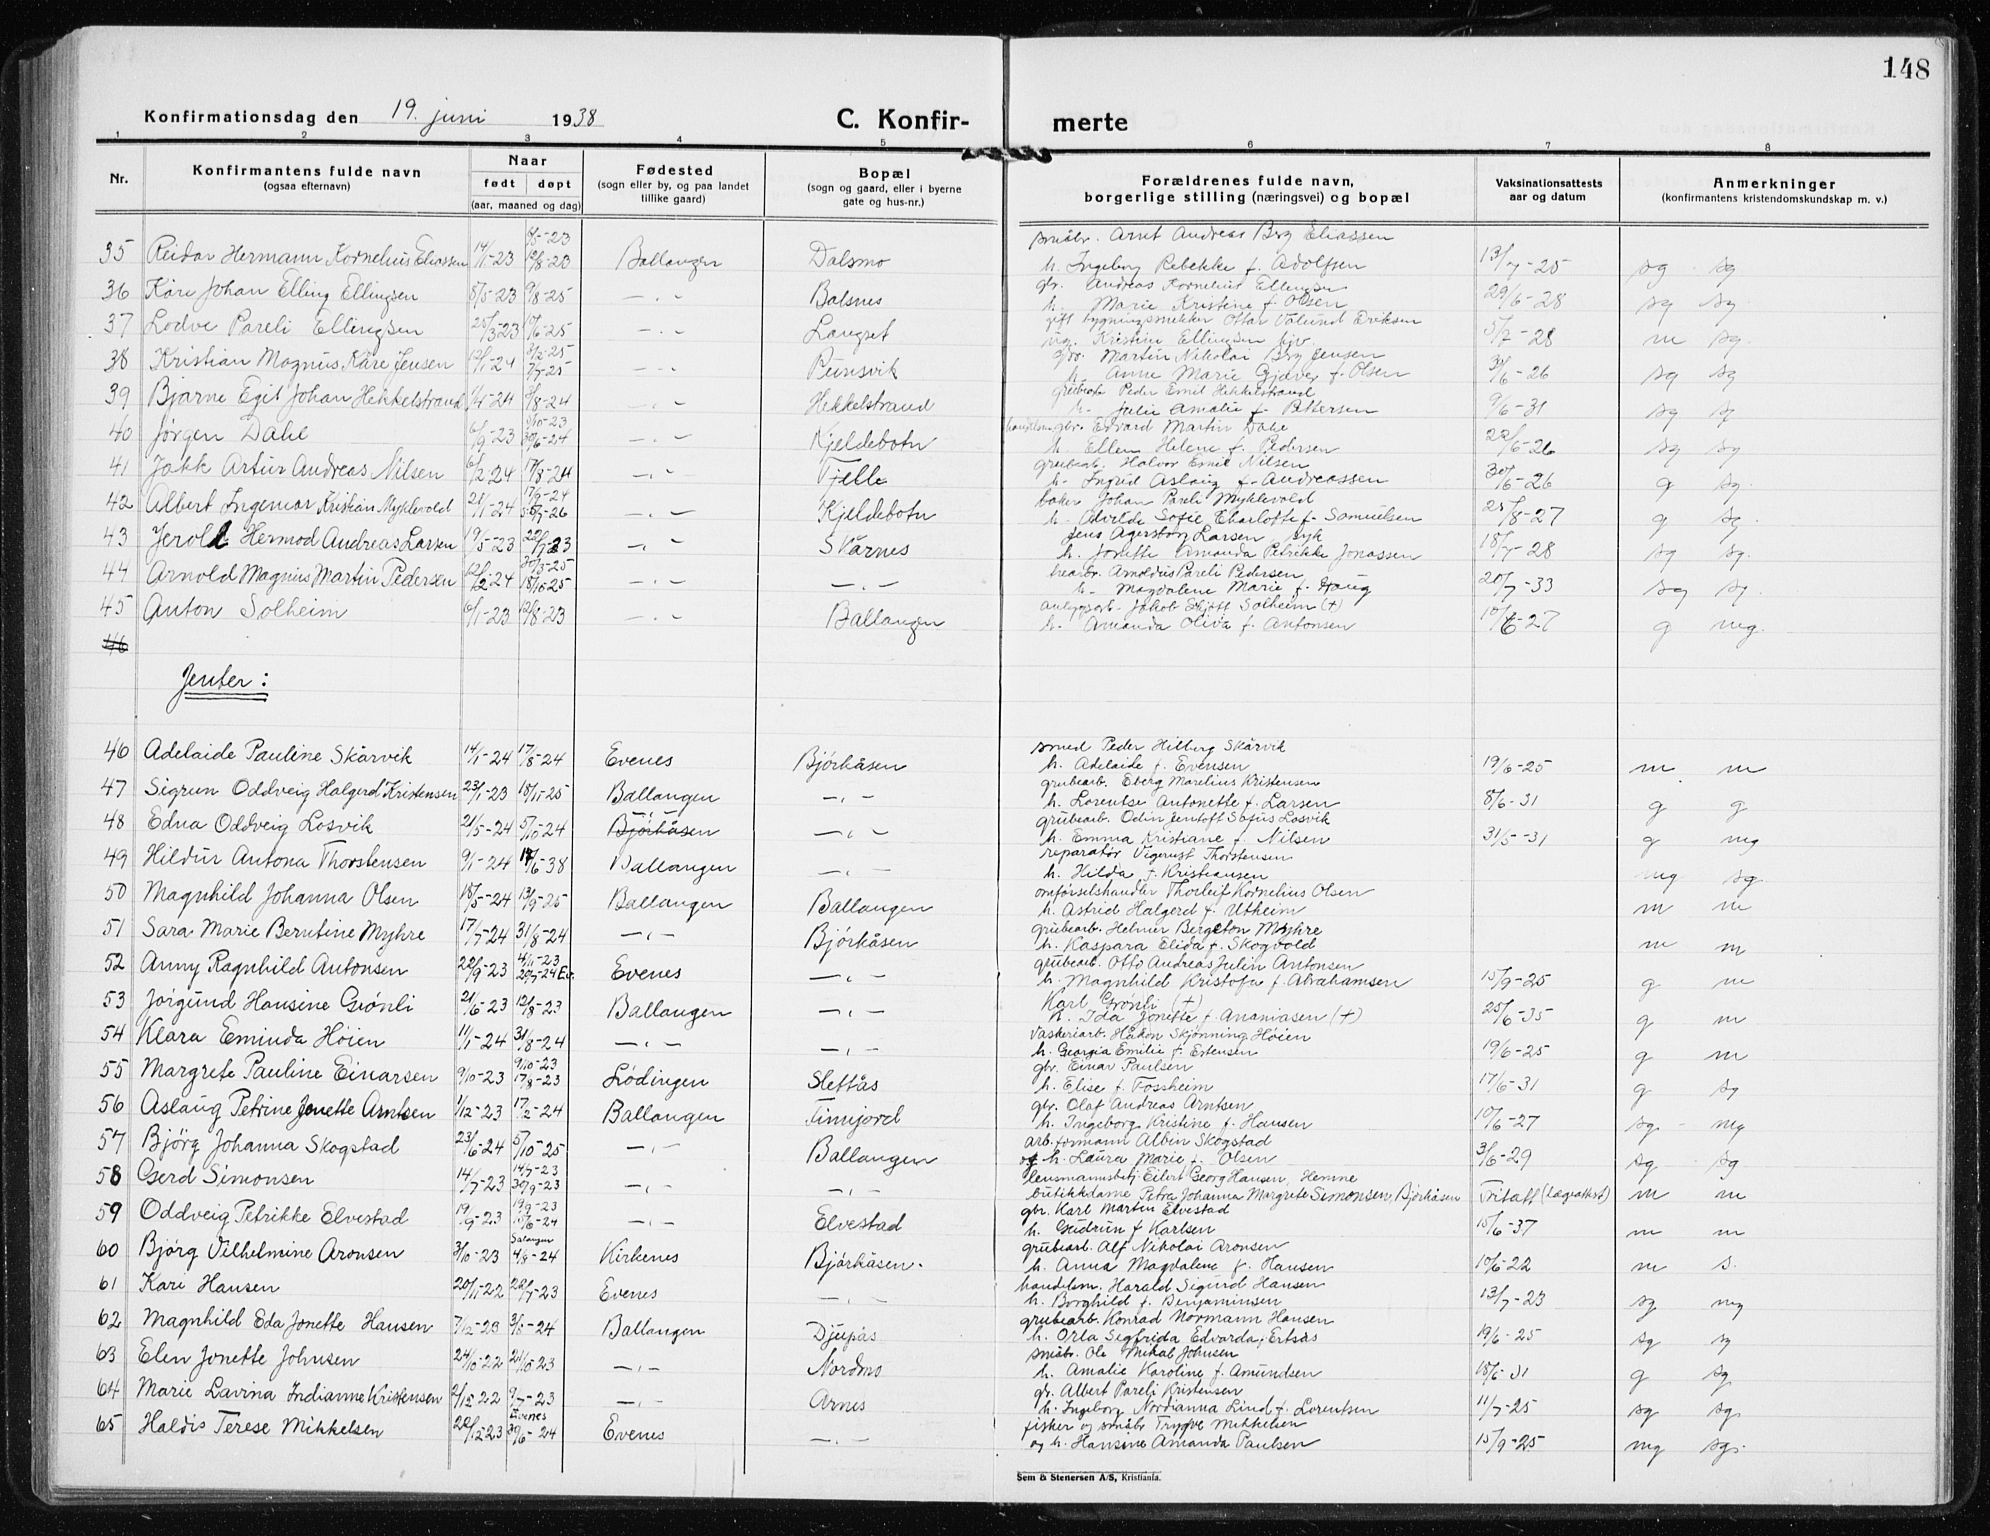 148
Konfirmationsdag den 19. juni 1938 C. Konfir- merte
1 2 3 4 5 6 7 8
Nr. Konfirmantens fulde navn (ogsaa efternavn) Naar født døpt (aar, maaned og dag) Fødested (sogn eller by, og paa landet tillike gaard) Bopæl (sogn og gaard, eller i byerne gate og hus-nr.) Forældrenes fulde navn, borgerlige stilling (næringsvei) og bopæl Vaksinationsattests aar og datum Anmerkninger (konfirmantens kristendomskundskap m. v.)
småbr. Arnt Andreas Berg Eliassen
35 Reidar Hermann Kornelius Eliassen 14/1-23 12/8-23 Ballangen Dalsmo h. Ingeborg Rebekke f. Adolfsen 13/7-25 sg sg
gbr. Andreas Kornelius Ellingsen
36 Kåre Johan Elling Ellingsen 8/5-23 9/8-25 -,- Balsnes h. Marie Kristine f. Olsen 29/6-28 sg sg
gift bygningssnekker Ottar Valund Eriksen
37 Lodve Pareli Ellingsen 25/3-23 1%6-25 -,- Langset ug. Kristine Ellingsen 5/7-28 m sg.
gbr. Martin Nikolai Berg Jensen
38 Kristian Magnus Kåre Jensen 12/1-24 7/7-25 -,- Runsvik h. Anne Marie Gjæver f. Olsen 30/6-26 sg sg
grubearb. Peder Emil Hekkelstrand
39 Bjarne Egil Johan Hekkelstrand 1/4-24 3/8-24 -,- Hekkelstrand h. Julie Amalie f. Pettersen 9/6-31 sg sg
gbr. Edvard Martin Dahl
40 Jørgen Dahl 6/9-23 30/6-24 -,- Kjeldebotn h. Ellen Helene f. Pedersen 22/6-26 sg sg
grubearb. Halvor Emil Nilsen
41 Jakk Artur Andreas Nilsen 6/2-24 17/8-24 -,- Fjelle h. Ingrid Aslaug f. Andreassen 30/6-26 g sg.
baker Johan Pareli Myklevold
42 Albert Ingemar Kristian Myklevold 21/1-24 17/9-24 5/7-26 -,- Kjeldebotn h. Alvilde Sofie Charlotte f. Samuelsen 25/8-27 g sg.
Jens Agersborg Larsen syk
43 Jerold Hermod Andreas Larsen 19/5-23 22/7-23 -,- Skarnes h. Jonette Amanda Petrikke Jonassen 18/7-28 sg sg.
Arnoldus Pareli Pedersen
44 Arnold Magnus Martin Pedersen 12/2-24 30/3-25 18/10-25 -,- -,- h. Magdalene Marie f. Haug 20/7-33 sg sg.
anleggsarb. Jakob Skjött Solheim (+)
45 Anton Solheim 6/1-23 12/8-23 -,- Ballangen h. Amanda Oliva f. Antonsen 10/6-27 g meg.
46
Jenter:
smed Peder Hilberg Skårvik
46 Adelaide Pauline Skårvik 14/1-24 17/8-24 Evenes Bjørkåsen h. Adelaide f. Evensen 19/6-25 m m
grubearb. Eberg Marelius Kristensen
47 Sigrun Oddveig Halgerd Kristensen 23/1-23 18/11-25 Ballangen -,- h. Lorentse Antonette f. Larsen 8/6-31 g g
grubearb. Odin Jentoft Sofus Losvik
48 Edna Oddveig Losvik 21/5-24 5/10-24 Bjørkåsen -,- h. Emma Kristiane f. Nilsen 31/5-31 g meg
reparatør Vigerust Thorstensen
49 Hildur Antona Thorstensen 9/1-24 18/6-38 Ballangen -,- h. Hilda f. Kristiansen meg sg.
omførselshandler Thorleif Kornelius Olsen
50 Magnhild Johanna Olsen 18/5-24 13/9-25 Ballangen Ballangen h. Astrid Halgerd f. Utheim m m
grubearb. Helmer Bergeton Myhre
51 Sara Marie Berntine Myhre 17/7-24 31/8-24 -,- Bjørkåsen h. Kaspara Elida f. Skogvold m m
grubearb. Otto Andreas Julin Antonsen
52 Anny Ragnhild Antonsen 22/9-23 4/11-23 20/7-24 Ev. Evenes -,- h. Magnhild Kristofa f. Abrahamsen 15/9-25 g m
Karl Grønli (+)
53 Jørgund Hansine Grønli 21/6-23 12/8-23 Ballangen -,- h. Ida Jonette f. Ananiasen (+) 25/6-35 g m
vaskeriarb. Håkon Skjønning Høien
54 Klara Eminda Høien 11/1-24 31/8-24 -,- -,- h. Georgia Emilie f. Estensen 19/6-25 g m
gbr. Einar Paulsen
55 Margrete Pauline Einarsen 9/10-23 9/10-23 17/8-23 Lødingen Slettås h. Elise f. Fossheim 17/6-31 g sg
gbr. Olaf Andreas Arntsen
56 Aslaug Petrine Jonette Arntsen 1/12-23 17/2-24 Ballangen Finnjord h. Ingeborg Kristine f. Hansen 10/6-27 sg meg
arb. formann Albin Skogstad
57 Bjørg Johanna Skogstad 23/6-24 5/10-25 -,- Ballangen og h. Laura Marie f. Olsen 3/6-29 sg sg
lensmannsbetj Eilert Georg Hansen, Hemne
58 Gerd Simonsen 14/7-23 14/7-23 30/9-23 -,- -,- butikkdame Petra Johanna Margrete Simonsen, Bjørkåsen Fritatt (lægeattest) m m
gbr. Karl Martin Elvestad
59 Oddveig Petrikke Elvestad 19/9-23 19/9-23 15/6-24 -,- Elvestad h. Gudrun f. Karlsen 15/6-37 m m
grubearb. Alf Nikolai Aronsen
60 Bjørg Vilhelmine Aronsen 3/10-23 Salangen 4/8-24 Kirkenes Bjørkåsen. h. Anna Magdalene f. Hansen 10/6-22 m s.
handelsm. Harald Sigurd Hansen
61 Kari Hansen 20/11-22 22/7-23 Evenes -,- h. Borghild f. Benjaminsen 13/7-23 sg meg
grubearb. Konrad Normann Hansen
62 Magnhild Eda Jonette Hansen 7/12-23 3/8-24 Ballangen Djupås h. Orla Sigfrida Edvarda f. Ertsås 19/6-25 sg sg
småbr. Ole Mikal Johnsen
63 Elen Jonette Johnsen 24/10-22 21/5-23 -,- Nordmo h. Amalie Karoline f. Amundsen 18/6-31 g sg
gbr. Albert Pareli Kristensen
64 Marie Lavina Indianne Kristensen 2/12 22 9/7-23 -,- Arnes h. Ingeborg Nordianna Lind f. Lorentsen 11/7-25 sg sg.
fisker og småbr Trygve Mikkelsen
65 Haldis Terese Mikkelsen 22/12-23 Evenes 30/6-24 Evenes -,- og h. Hansine Amanda Paulsen 15/9-25 meg sg.
Sem & Stenersen A/S, Kristiania.